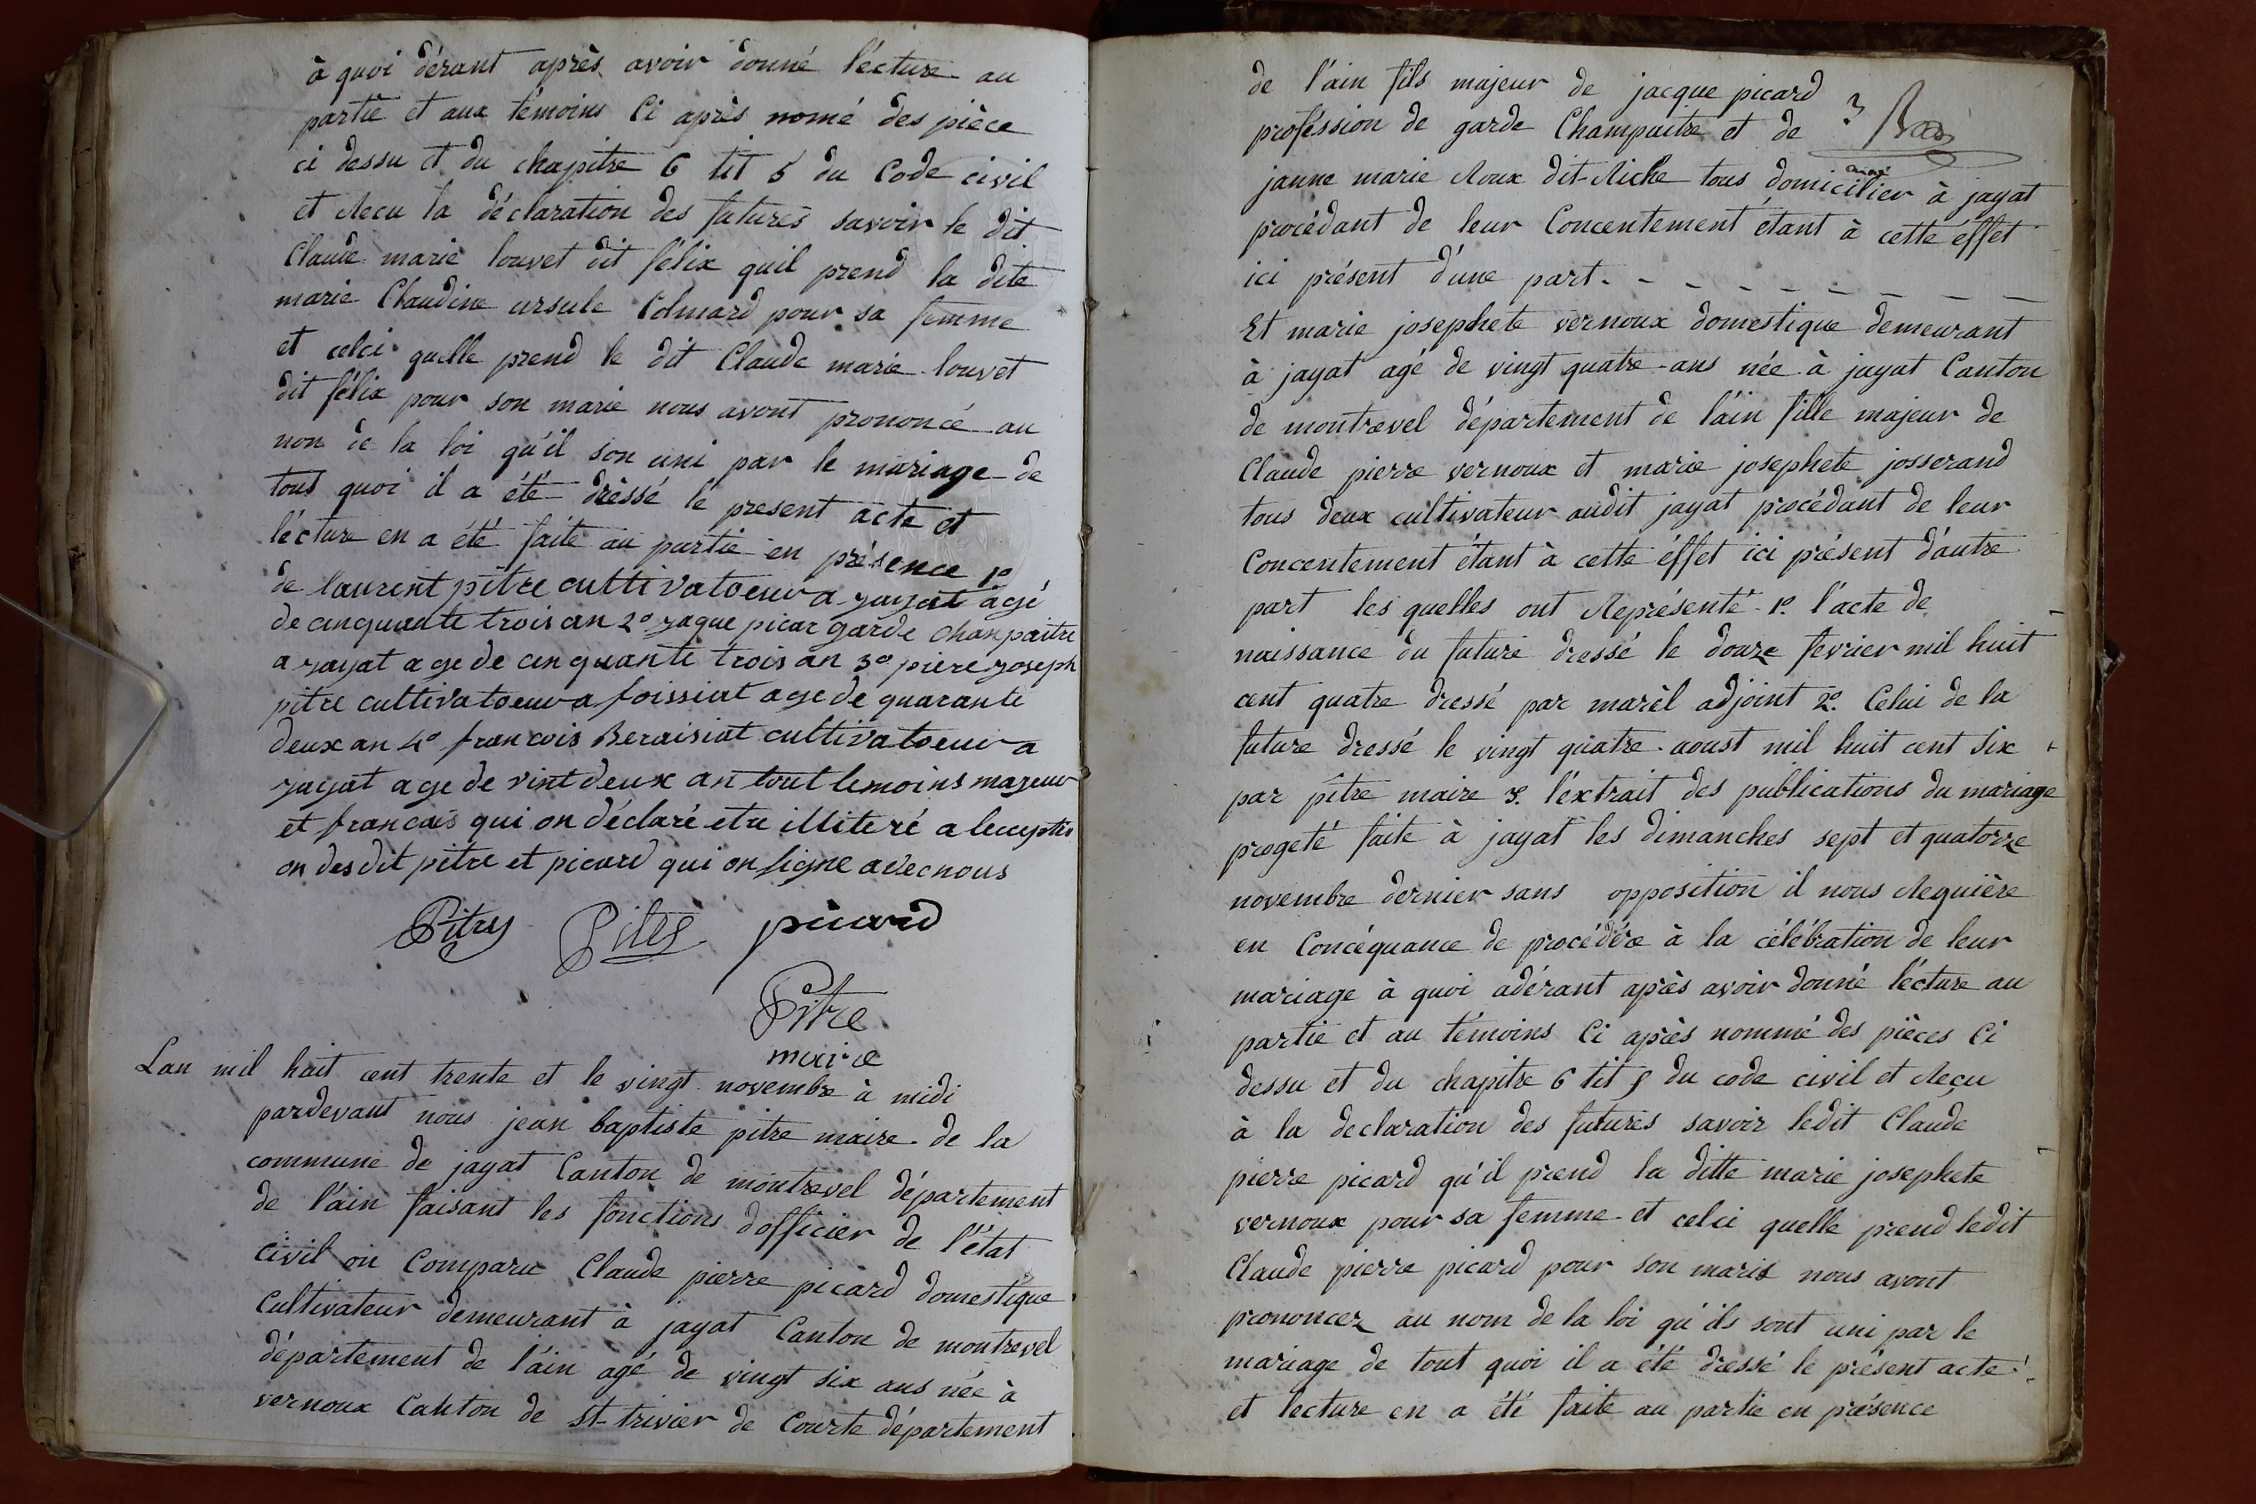 à quoi dérant après avoir donné lécture au
partie et aux témoins Ci après nomé des pièce
ci dessu et du chapitre 6 tit 5 du Code civil
et Reçu la déclaration des futures savoir le dit
Claude marie louvet dit félix quil prend la dite
marie Claudine ursule Colmard pour sa femme
et celci quelle prend le dit Claude marie louvet
dit félix pour son marie nous avont prononcé au
non de la loi qu'il son uni par le mariage de
tout quoi il a été dréssé le present acte et
lécture en a été faite au partie en présence 1º
de laurent pitre cultivatoeur a yayat agé
de cinquante trois an 2º yaque picar garde chanpaitre
a yayat age de cinquante trois an 3º piere yoseph
pitre cultivatoeur a foissiat age de quarante
deux an 4º francois Beraisiat cultivatoeur a
yayat age de vint deux an tout temoins mayeur
et francais qui on déclaré etre illiteré a lecuptis
on desdit pitre et picard qui on signe avec nous
Pitre Pitre picard
Pitre
maire
Lan mil huit cent trente et le vingt novembre à midi
pardevant nous jean baptiste pitre maire de la
commune de jayat Canton de montrevel département
de l'ain faisant les fonctions dofficier de l'état
civil on Comparu Claude pierre picard domestique
Cultivateur demeurant à jayat Canton de montrevel
département de l'ain agé de vingt six ans née à
vernoux Canton de st trivier de Courte département
de l'ain fils majeur de jacque picard
proféssion de garde Champaitre et de
janne marie Roux dit Riche tous domicilier à jayat
procédant de leur Concentement étant à cette éffet
ici présent d'une part. - - - - - - - -
Et marie josephete vernoux domestique demeurant
à jayat agé de vingt quatre ans née à jayat Canton
de montrevel département de l'ain fille majeur de
Claude pierre vernoux et marie josephete josserand
tous deux cultivateur audit jayat procédant de leur
Concentement étant à cette éffet ici présent d'autre
part les quelles ont Représenté 1º. l'acte de
naissance du future dressé le douze fevrier mil huit
cent quatre dressé par marèl adjoint 2º. Celui de la
future dressé le vingt quatre aoust mil huit cent six
par pitre maire 3. l'éxtrait des publications du mariage
progeté faite à jayat les dimanches sept et quatorze
novembre dernier sans opposition il nous Requière
en Concéquance de procédére à la célébration de leur
mariage à quoi adérant après avoir donné lécture au
partie et au témoins Ci après nommé des pièces Ci
dessu et du chapitre 6 tit 5 du code civil et Reçu
à la declaration des futures savoir ledit Claude
pierre picard qu'il prend la ditte marie josephete
vernoux pour sa femme et celci quelle prend ledit
Claude pierre picard pour son maris nous avont
prononcez au nom de la loi qu'ils sont uni par le
mariage de tout quoi il a été dressé le présent acte
et lecture en a été faite au partie en présence